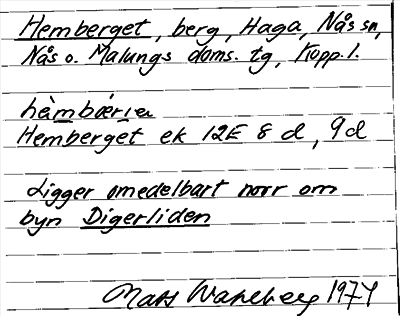 Hemberget, berg, Haga, Nås sn,
Nås o. Malungs doms. tg, Kopp. l.
hèmbæ̀rıe
Hemberget ek 12E 8 d, 9d
Ligger omedelbart norr om
byn Digerliden
Mats Wahlberg 1974